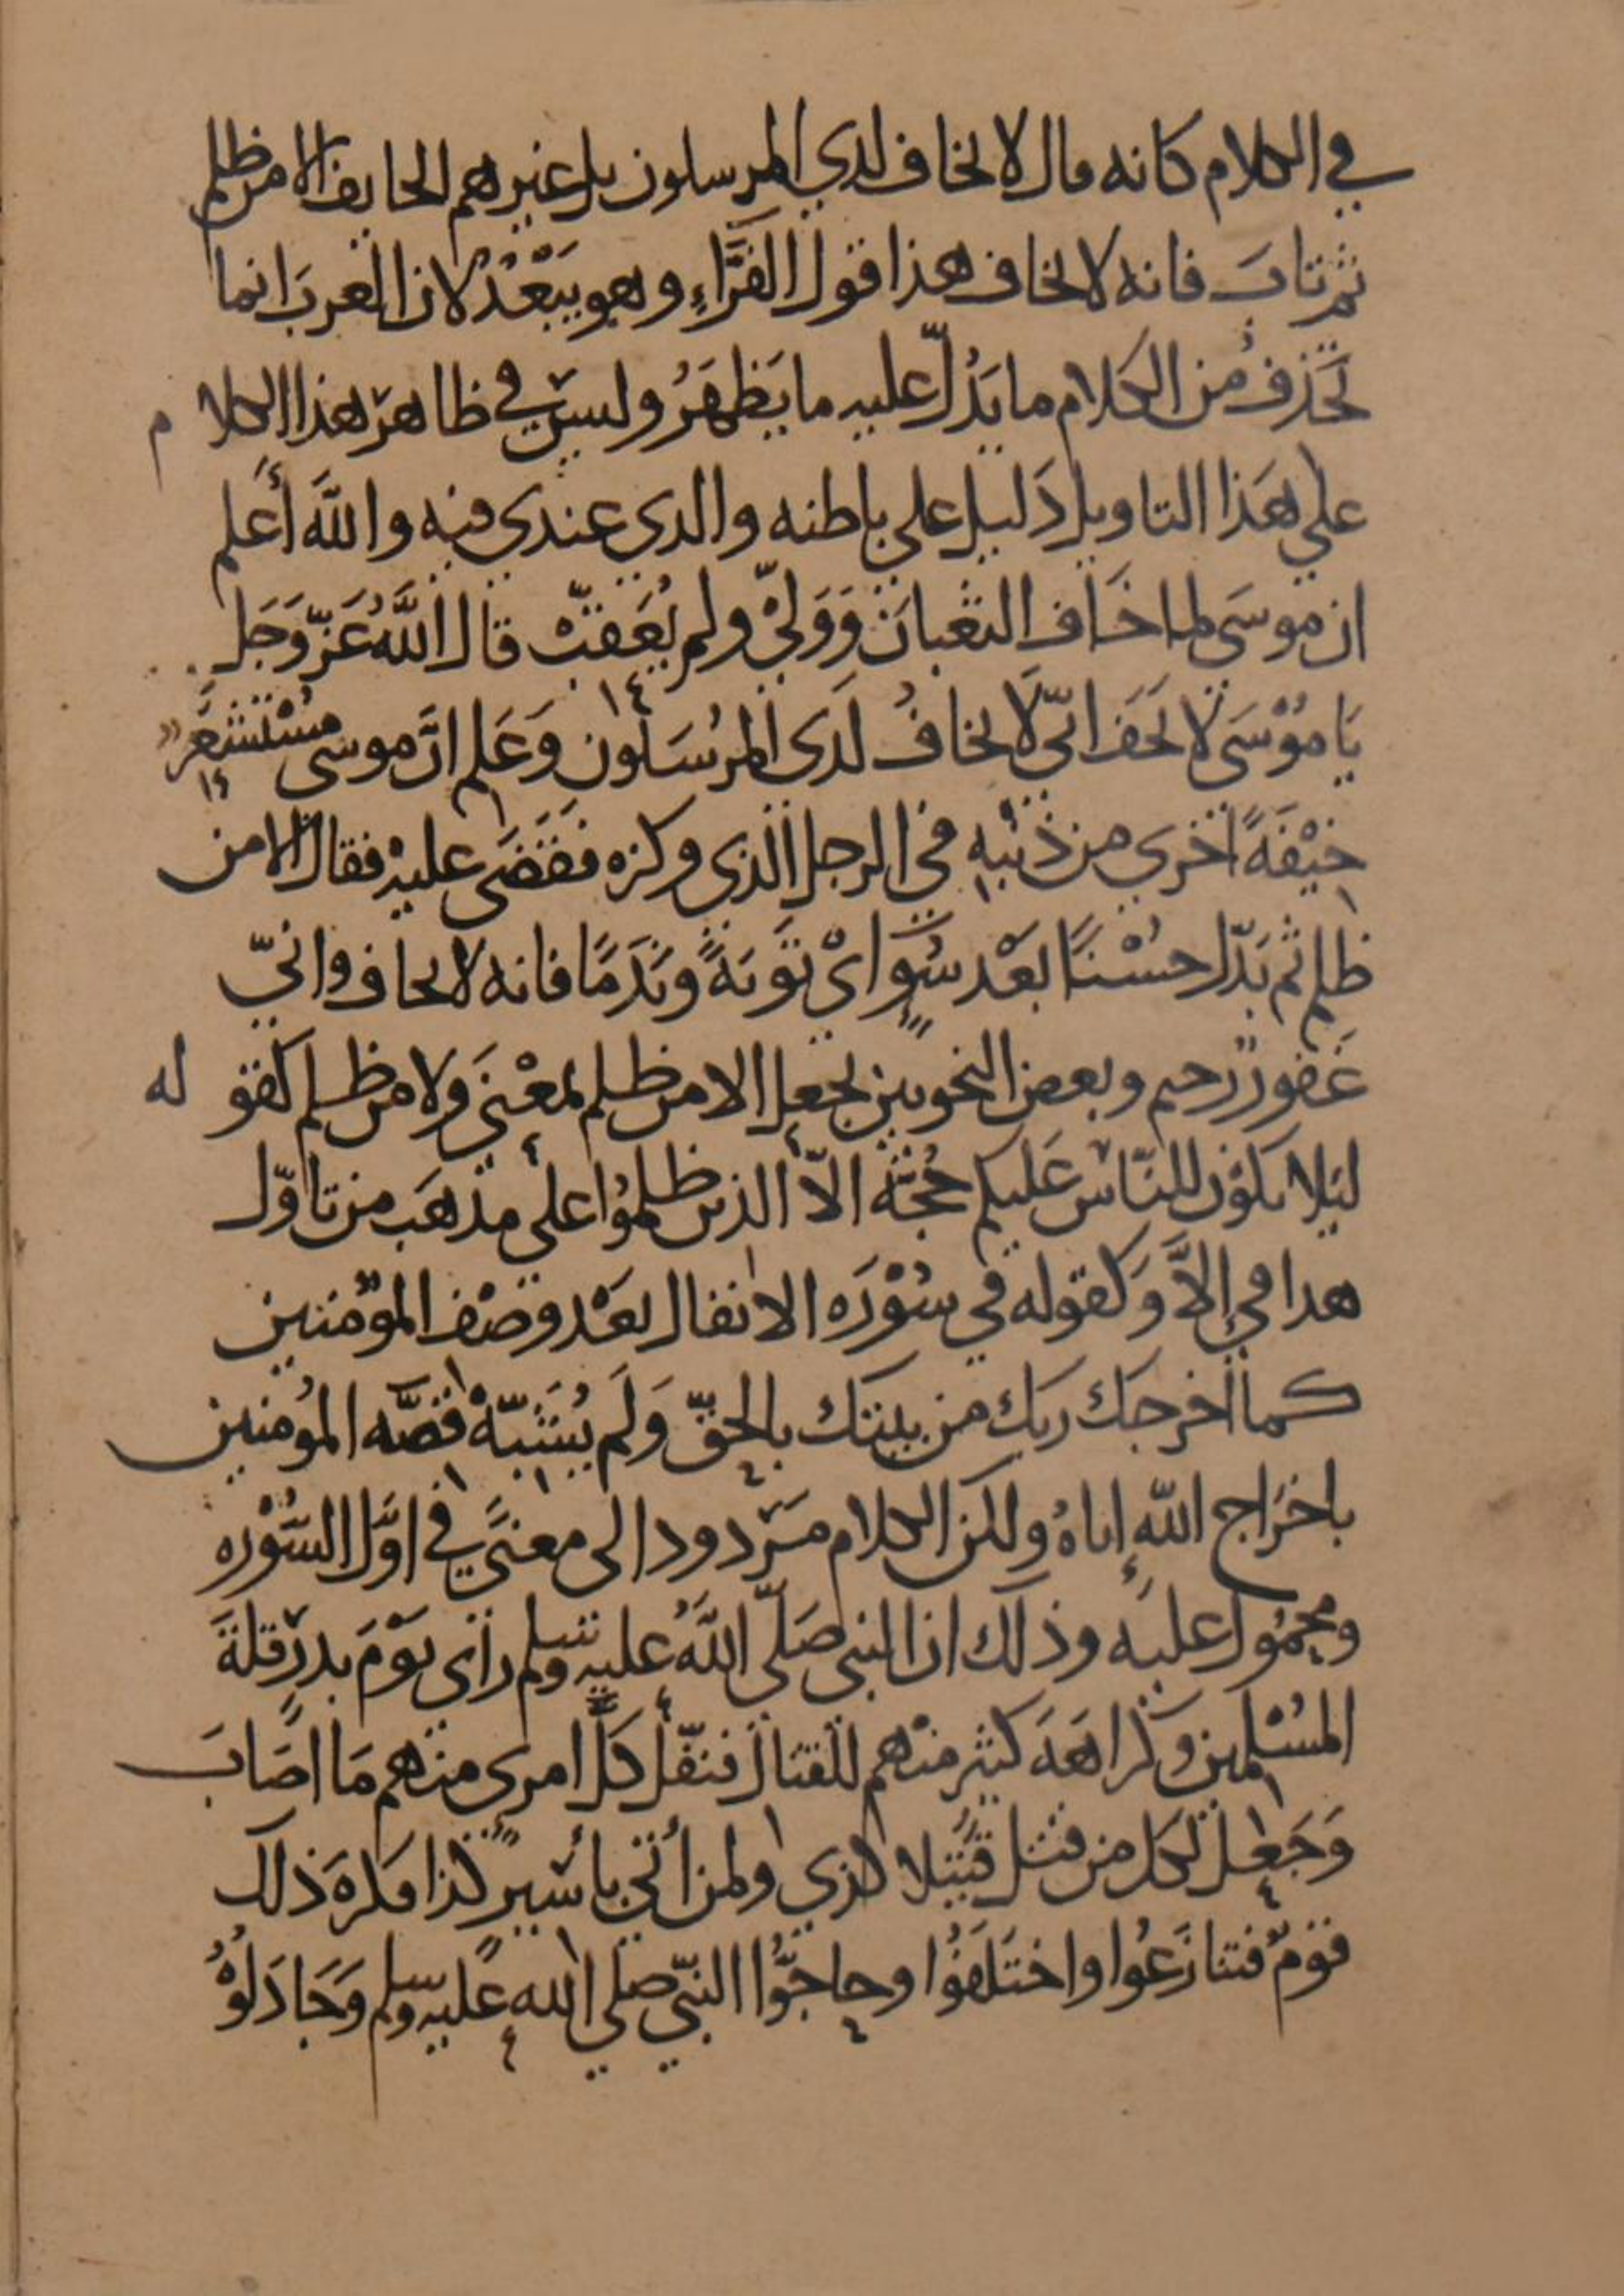 في الكلام كانه قال لا يخاف لدي المرسلون بل غيرهم الخايف الا من ظلم
ثم تاب فانه لا يخاف هذا قول الفَرَّاءِ وهو يَبْعُدُ لان العربَ انما
تَحذفُ من الكلام ما يَدُلّ عليه ما يَظهَرُ وليسَ في ظاهر هذا الكلام
علي هَذا التاويل دَليل علي باطنه والذي عندي فيه والله أَعلم
ان موسَى لما خَاف الثعبانَ وَوَلىّ ولم يُعَقبّْ قال اللهُ عَزّ وَجَل
يَا مُوْسَى لا تَخَف انّي لَا يخافُ لَدَى المرُسَلون وَعَلم انّ موسى مُسْتَشْعِر
خيْفَةً اخْري من ذَنْبهِ في الرجل الذي وكزه فقَضَى عليْهِ فقال الا من
ظلم ثم بَدّل حُسْنًا بعْد سُوٍ اىْ تَوبَةً ونَدَمًا فانه لا يخاف وانيّ
غَفورٌ رحيم وبعض النحويين يجعل الا من ظلم بمعْنَى ولا من ظلم كقوله
ليَلا يكوْن للنّاس عَليكم حُجّة الاّ الذين ظلمُوا علي مذهَب من تاوّل
هذا في إلاَّ وَكقوله في سُوْرَه الانفال بعَْد وصْف المؤمنين
كما اخرجَك ربك من بيتك بالحقّ وَلَم يُشَبّهْ قصّه المؤمنين
باخرَاج اللهِ اياهُ ولكن الكلام مَردود الى معنَىً في اوَّل السُّوْره
ومحمُول عليه وذلك ان النبي صَلّي اللهُ عليه وسلم رأى يَوْمَ بدرٍ قلةَ
المسْلمين وكرَاهَةَ كثير منهم للقتال فنفّل كلَّ امري منهم مَا اصَابَ
وَجَعل لكل من قتل قَتيلا كذي ولمن أتي بأسيرٍ كذا فكرهَ ذلك
قومٌ فتنازَعُوا واختَلَفُوا وحاجّوُا النبّي صلي الله عليه وسلم وَجَادَلُوْهُ